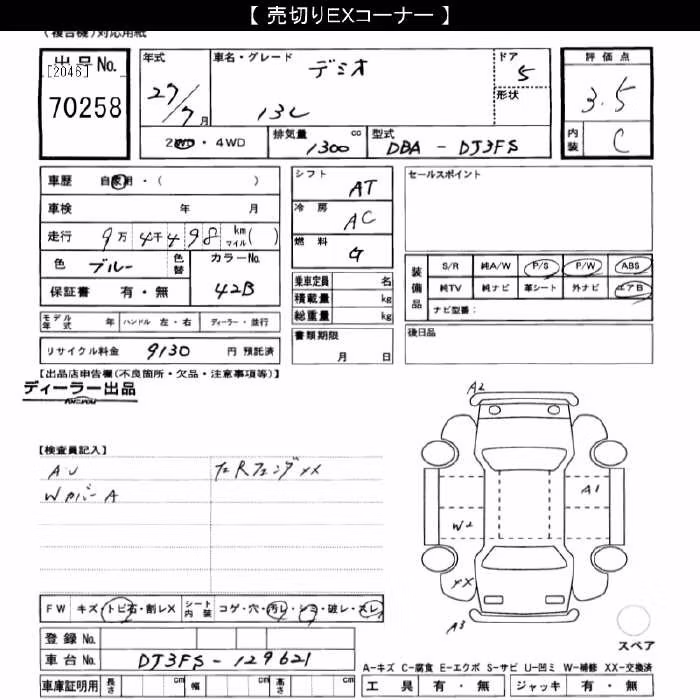 【 売切りEXコーナー 】
(複合機)対応用紙
出品No. [2046] 70258
年式 27/7月
車名・グレード デミオ 13C
ドア 5
形状
評価点 3.5
内装 C
2WD・4WD 排気量 1300 cc 型式 DBA - DJ3FS
車歴 自家用・( )
車検 年 月
走行 9万4千498 km マイル( )
色 ブルー 色替 カラーNo. 42B
保証書 有・無
モデル年式 年 ハンドル 左・右 ディーラー・並行
リサイクル料金 9130 円 預託済
シフト AT
冷房 AC
燃料 G
乗車定員 名
積載量 kg
総重量 kg
書類期限
月 日
セールスポイント
装備品 S/R 純A/W P/S P/W ABS
純TV 純ナビ 革シート 外ナビ エアB
ナビ型番:
後日品
【出品店申告欄(不良箇所・欠品・注意事項等)】
ディーラー出品
【検査員記入】
AU
WカバーA
左RフェンダXX
A2
A1
W2
XX
A3
スペア
FW キズ・トビ石・割レX シート内装 コゲ・穴・汚レ・シミ・破レ・スレ
登録No.
車台No. DJ3FS-129621
車庫証明用 長さ cm 幅 cm 高さ cm
A-キズ C-腐食 E-エクボ S-サビ U-凹ミ W-補修 XX-交換済
工具 有・無 ジャッキ 有・無